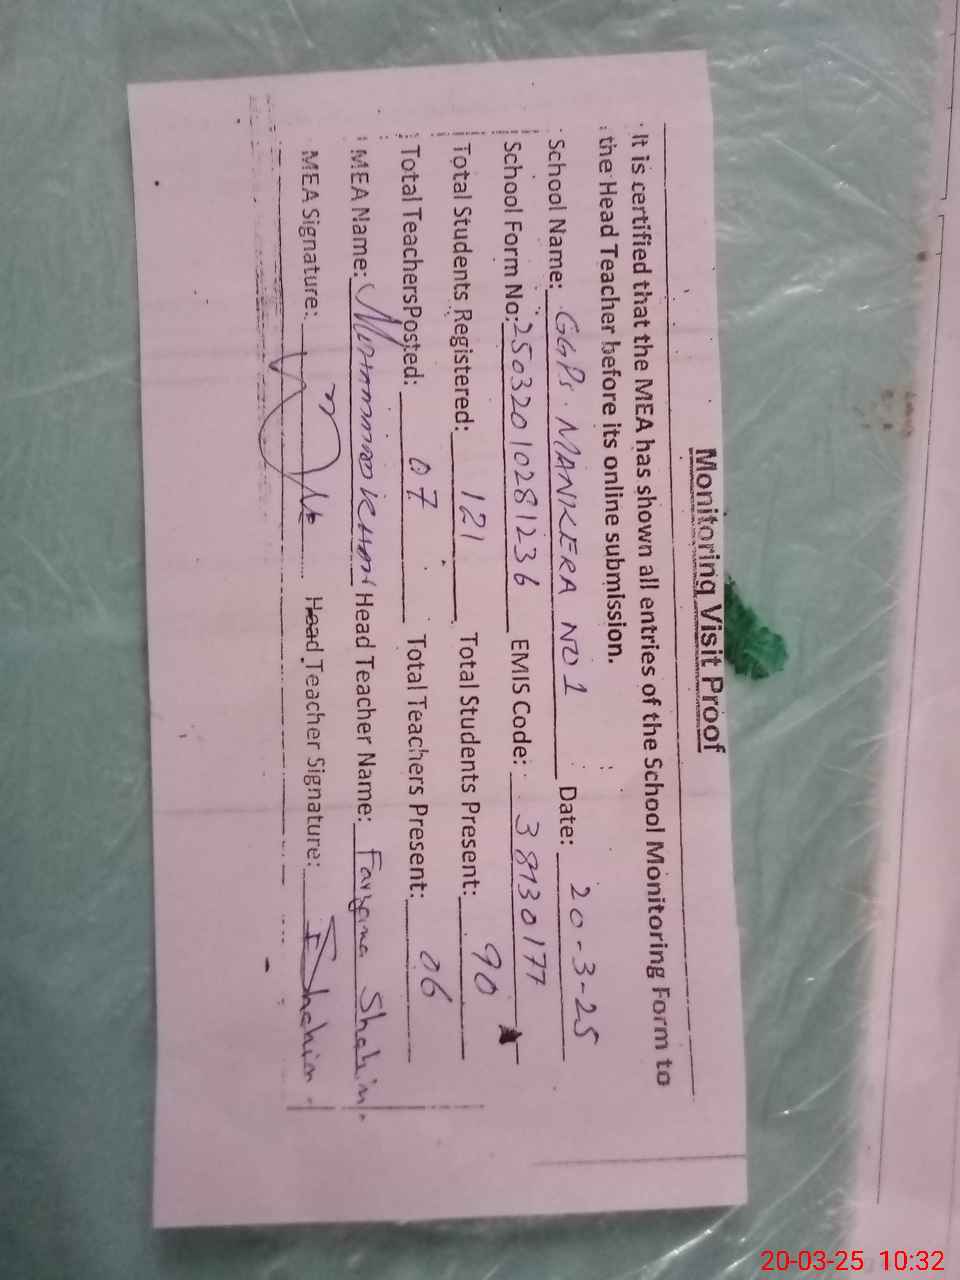 Monitoring Visit Proof
It is certified that the MEA has shown all entries of the School Monitoring Form to
the Head Teacher before its online submission.
School Name: GGPS. MANKERA NO 1 Date: 20-3-25
School Form No: 25032010281236 EMIS Code: 38130177
Total Students Registered: 121 Total Students Present: 90
Total TeachersPosted: 07 Total Teachers Present: 06
MEA Name: MUHAMMAD KHAN Head Teacher Name: Shahin
MEA Signature: Head Teacher Signature: Shahin
20-03-25 10:32